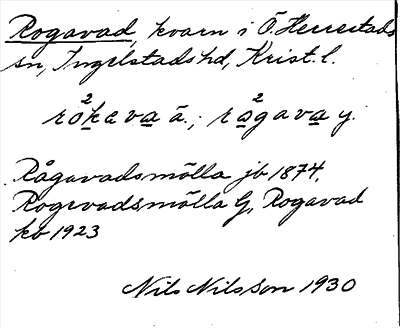 Rogavad, kvarn i Ö. Herrestads
sn, Ingelstads hd, Krist. l.
rò²kava ä.; rå²gava y.
Rågavadsmölla jb 1874,
Rogevadsmölla G, Rogavad
kb 1923
Nils Nilsson 1930